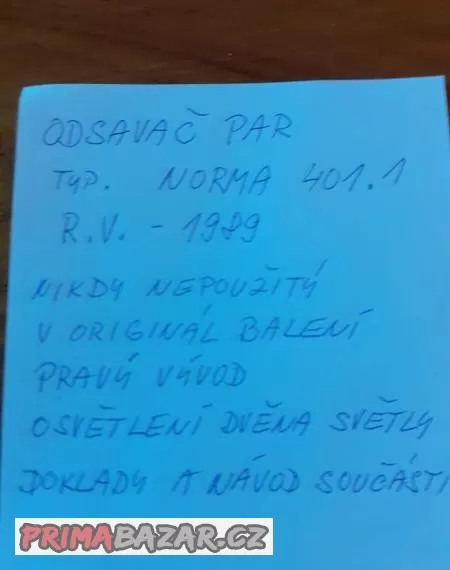 ODSAVAČ PAR
TYP. NORMA 401.1
R.V. - 1989
NIKDY NEPOUŽITÝ
V ORIGINÁL BALENÍ
PRAVÝ VÝVOD
OSVĚTLENÍ DVĚNA SVĚTLY
DOKLADY A NÁVOD SOUČÁSTÍ
PRIMABAZAR.CZ